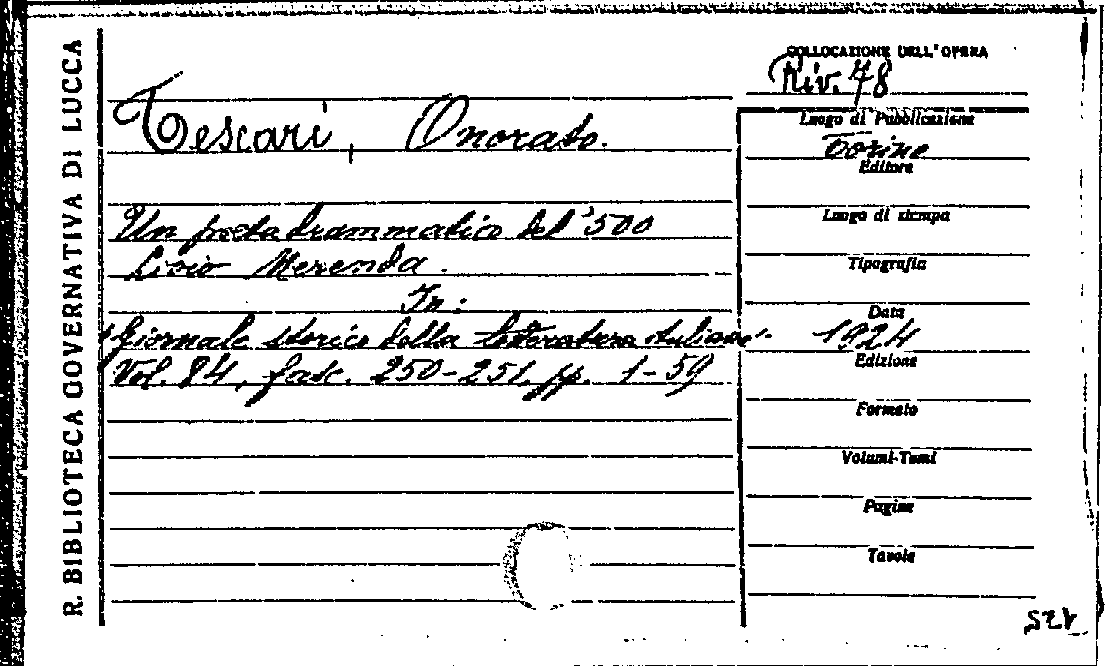 R. BIBLIOTECA GOVERNATIVA DI LUCCA
COLLOCAZIONE DELL'OPERA
Riv. 78
Tescari, Onorato.
Un poeta drammatico del '500
Livio Merenda.
In:
Giornale storico della letteratura italiana.
Vol. 84, fasc. 250-251. pp. 1-59
Luogo di Pubblicazione
Torino
Editore
Luogo di stampa
Tipografia
Data
1924
Edizione
Formato
Volumi-Tomi
Pagine
Tavole